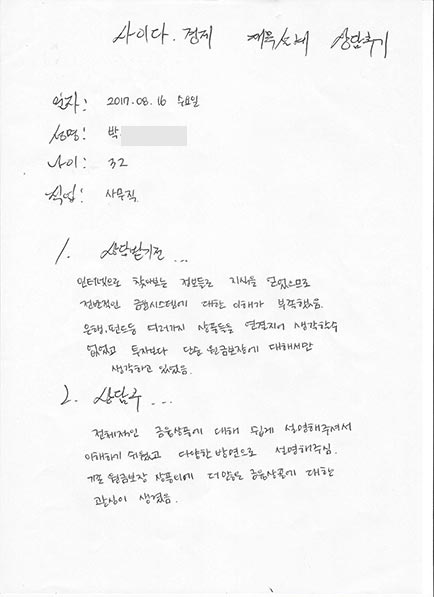 사이다.경제 재무설계 상담후기
일자: 2017.08.16 수요일
성명: 박
나이: 32
직업: 사무직
1. 상담받기전...
인터넷으로 찾아보는 정보들로 지식을 얻었으므로
전반적인 금융시스템에 대한 이해가 부족했음.
은행, 펀드등 여러가지 상품들을 연결지어 생각할수
없었고 투자보다 단순 원금보장에 대해서만
생각하고 있었음.
2. 상담후...
전체적인 금융상품에 대해 쉽게 설명해주셔서
이해하기 쉬웠고 다양한 방면으로 설명해주심.
기존 원금보장 상품외에 더 많은 금융상품에 대한
관심이 생겼음.